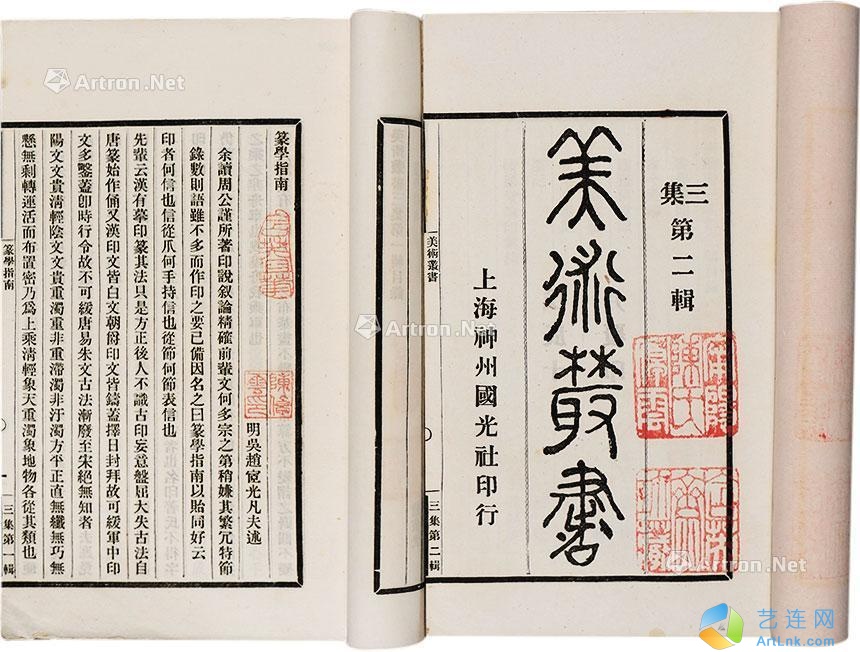 三集第二輯
美術叢書
上海神州國光社印行
美術叢書
三集第二輯
篆學指南
明吳趙宧光凡夫述
余讀周公謹所著印說叙論精確前輩文何多宗之第稍嫌其繁冗特節
錄數則語雖不多而作印之要已備因名之曰篆學指南以貽同好云
印者何信也信從爪何手持信也從節何節表信也
先輩云漢有摹印篆其法只是方正後人不識古印妄意盤屈大失古法自
唐篆始作俑又漢印文皆白文朝爵印文皆鑄蓋擇日封拜故可緩軍中印
文多鑿蓋卽時行令故不可緩唐易朱文古法漸廢至宋絕無知者
陽文文貴淸輕陰文文貴重濁重非重滯濁非汙濁方平正直無纖無巧無
懸無剩轉運活而布置密乃爲上乘淸輕象天重濁象地物各從其類也
篆學指南
一
三集第一輯
Artron.Net
Artron.Net
Artron.Net
Artron.Net
Artron.Net
艺连网
ArtLnk.com